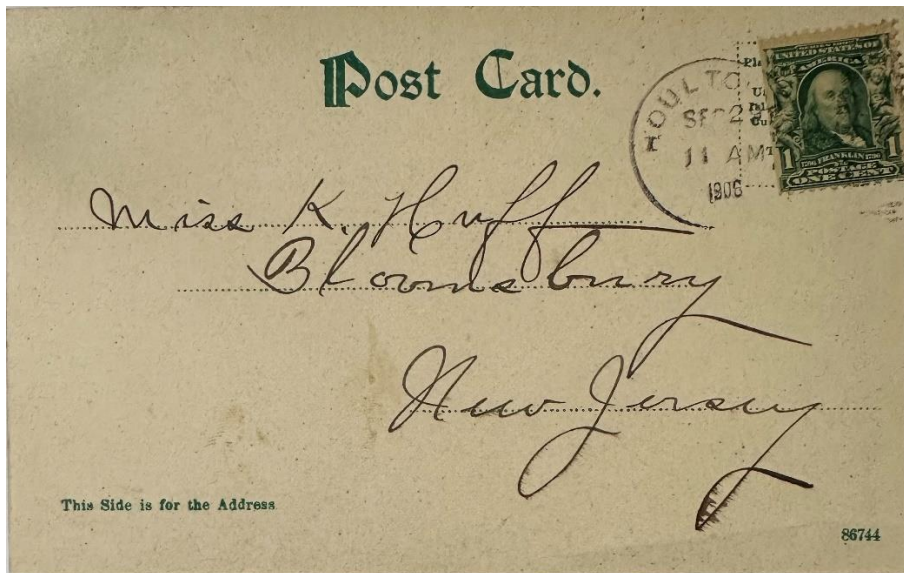 Post Card.
HOULTO
SEP 2
11 AM
1906
UNITED STATES OF
AMERICA
1706 FRANKLIN 1790
1 1
POSTAGE
ONE CENT
Miss K. Huff
Bloomsbury
New Jersey
This Side is for the Address
86744